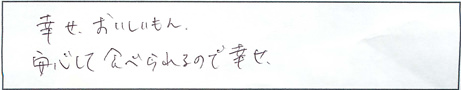 幸せ、おいしいもん、
安心して食べられるので幸せ、